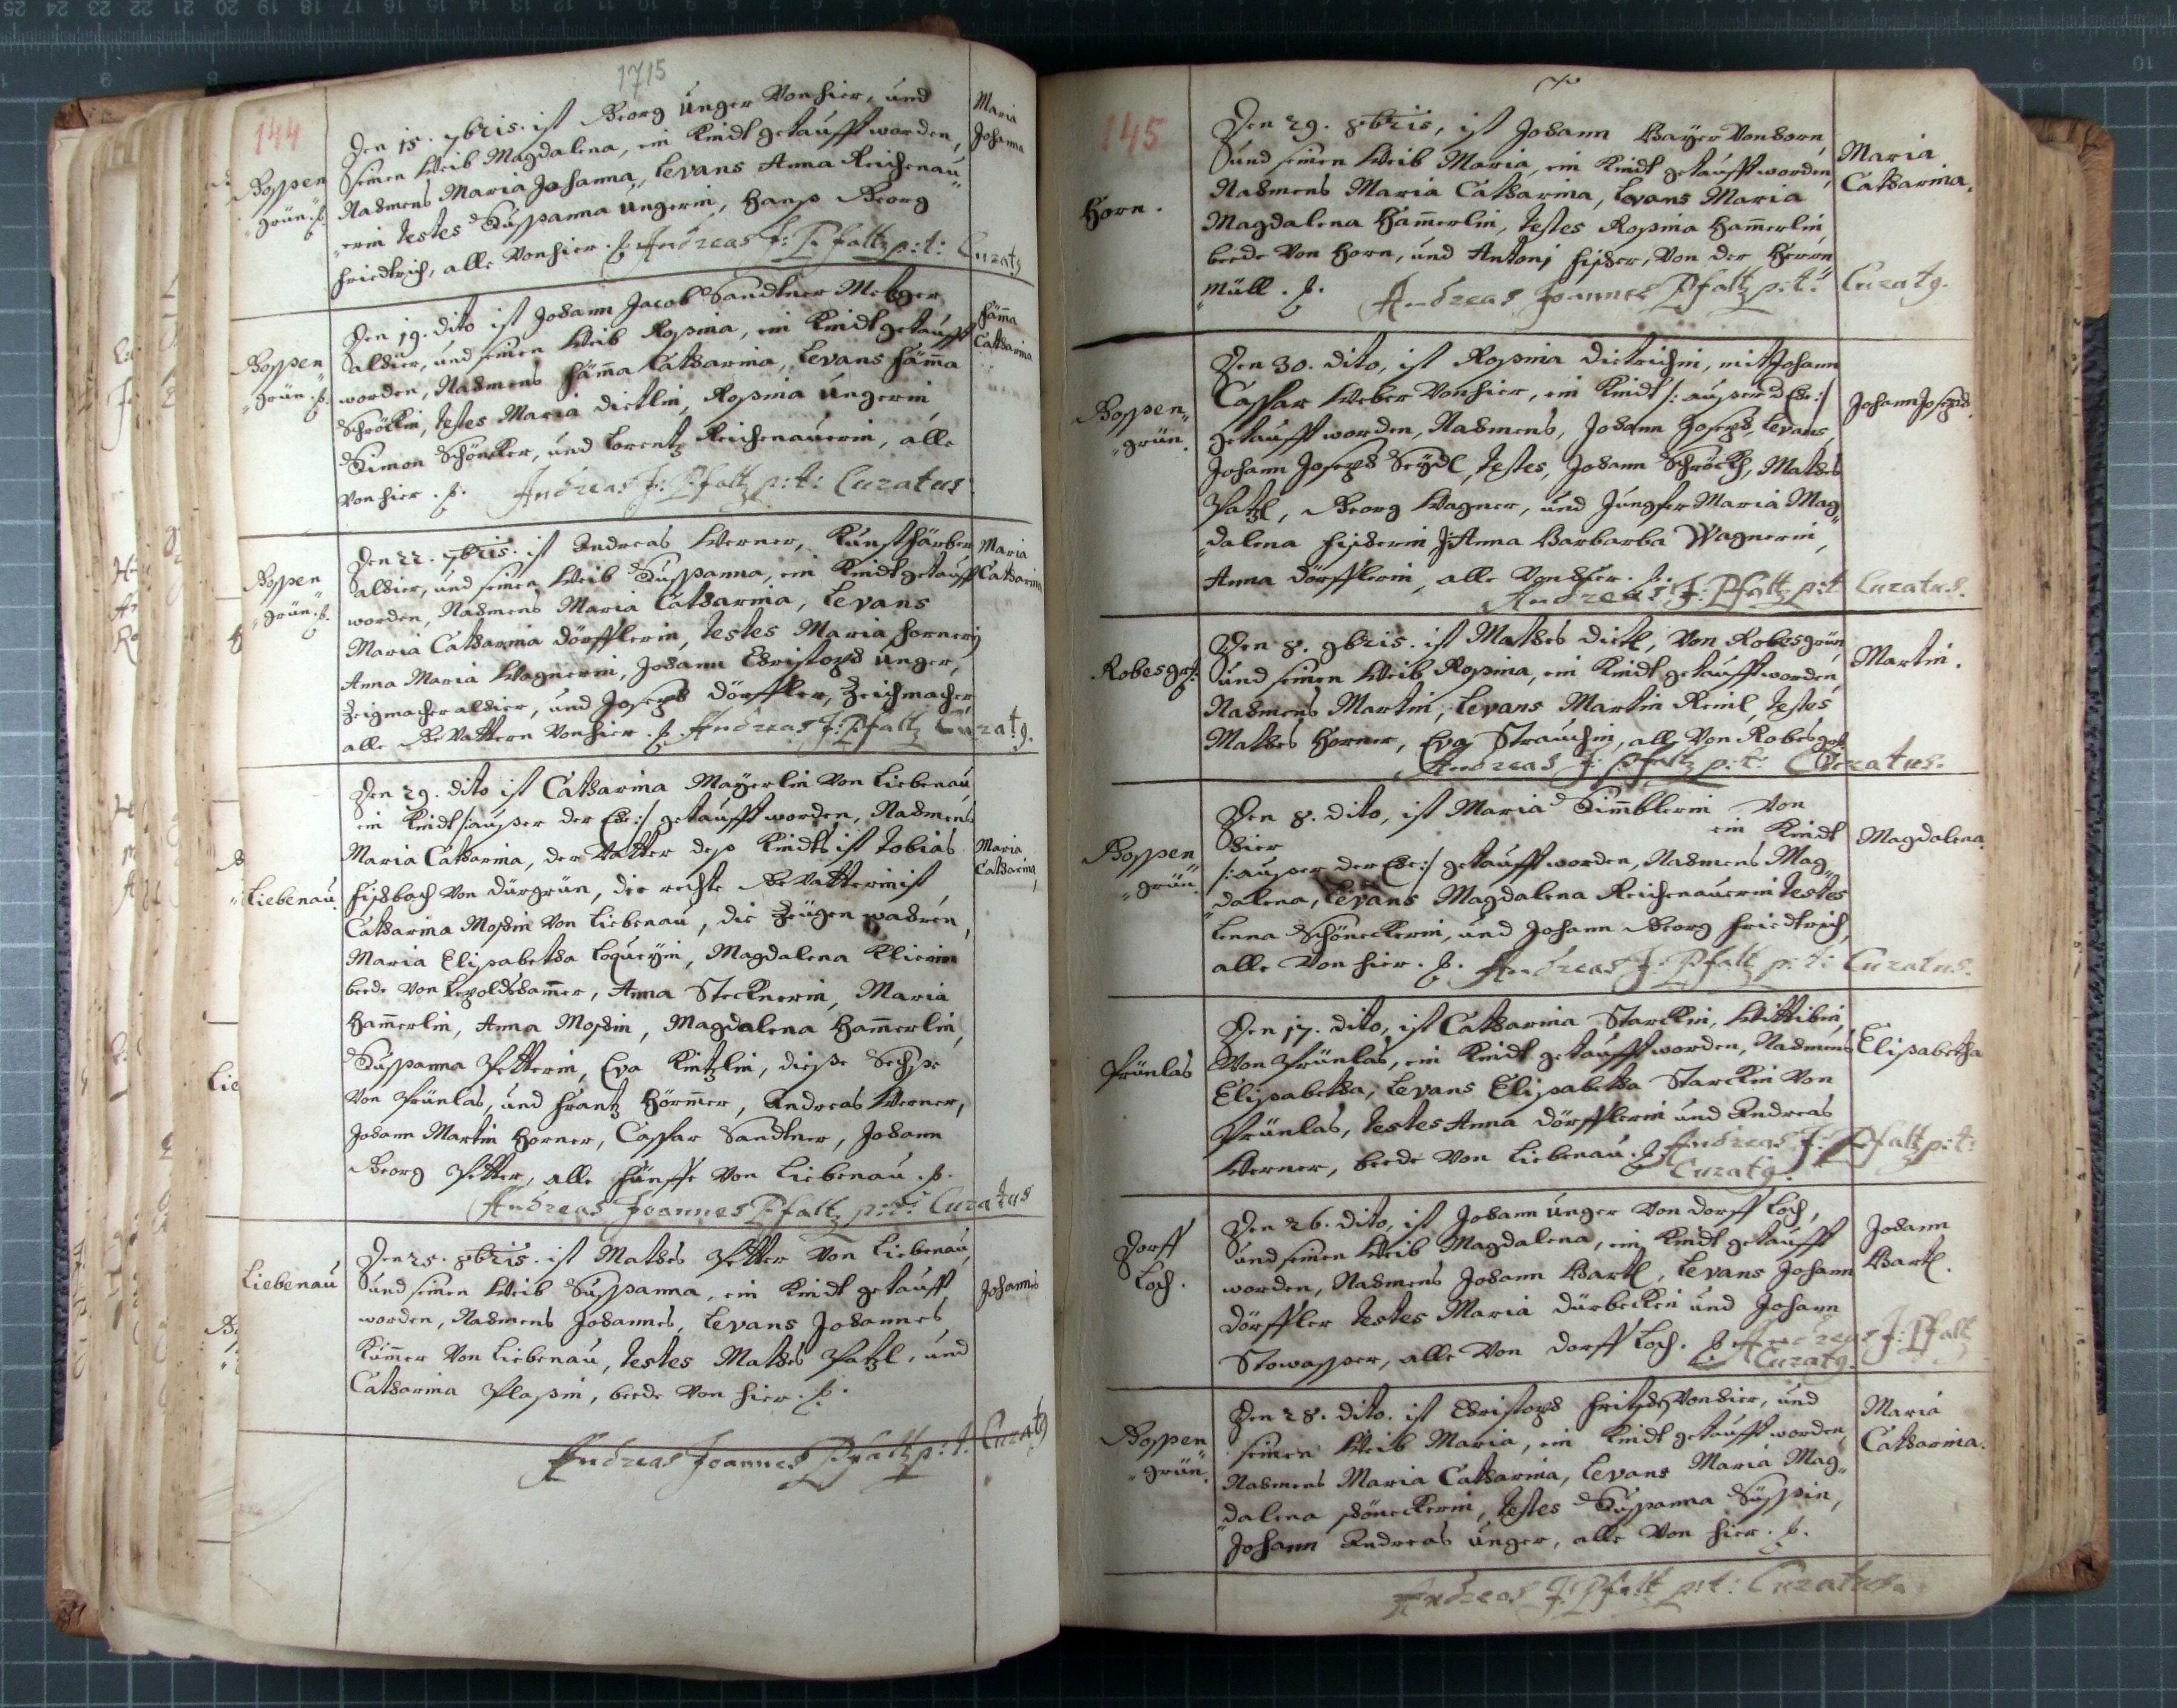 1715
144
Boppen„
„grün. p.
Den 15. 7bris. ist Georg Unger Von hier, und
seinen Weib Magdalena, ein Kindt getaufft worden,
Nahmens Maria Johanna, Levans Anna Reichenau„
„erin testes Sussanna Ungerin, Hanß Georg
friedtrich, alle Von hier. p. Andreas J: Pfaltz p: t: Curatg
Maria
Johanna
Boppen„
„grün. p.
Den 19. dito ist Johann Jacob Sandtner Metzger
alhier, und seinen Weib Rosina, ein Kindt getaufft
worden, Nahmens Catharina, Levans
Schröckin, testes Maria dietlin, Rosina Ungerin,
Simon Schönecker, und Lorentz Reichenauerin, alle
Von hier. p. Andreas J: Pfaltz p: t: Curatus
Catharina
Boppen„
„grün. p.
Den 22. 7bris. ist Andreas Werner, Kunstfärber
alhier, und seinen Weib Sussanna, ein Kindt getaufft
worden, Nahmens Maria Catharina, Levans
Maria Catharina dörfflerin, testes Maria
Anna Maria Wagnerin, Johann Christoph Unger,
Zeigmacher alhier, und Joseph dörffler, Zeichmacher,
alle GeVattern Von hier. p. Andreas J: Pfaltz Curatg.
Maria
Catharina
Liebenau.
Den 29. dito ist Catharina Mayerlin Von Liebenau,
ein Kindt /:ausser der Ehe:/ getaufft worden, Nahmens
Maria Catharina, der Vatter deß Kindts ist tobias
fischbach Von dürgrün, die rechte GeVatterin ist,
Catharina Moschin Von Liebenau, die Zeügen wahren,
Maria Elisabetha Magdalena Klierin
beede Von Lepoldshammer, Anna Stecknerin, Maria
Ham̄erlin, Anna Moschin, Magdalena Ham̄erlin,
Sussanna Petterin, Eva Kintzlin, diese Sechse
Von Prünlas, und frantz Hörmer, Andreas Werner,
Johann Martin Horner, Casspar Sandtner, Johann
Georg Petter, alle fünffe Von Liebenau. p.
Andreas Joannes Pfaltz p: t: Curatus
Maria
Catharina
Liebenau
Den 25. 8bris. ist Mathes Petter Von Liebenau,
und seinen Weib Sussanna, ein Kindt getaufft
worden, Nahmens Johannes, Levans Johannes
Kümer Von Liebenau, testes Mathes Patzl, und
Catharina Plaßin, beede Von hier. p.
Andreas Joannes Pfaltz p: t. Curatg
Johannes
145
Horn.
Den 29. 8bris, ist Johann Bayer Von Horn,
und seinen Weib Maria, ein Kindt getaufft worden,
Nahmens Maria Catharina, Levans Maria
Magdalena Ham̄erlin, testes Rosina Ham̄erlin,
beede Von Horn, und Antonj fischer, Von der Herrn„
„müll. p. Andreas Joannes Pfaltz p: t: Curatg.
Maria
Catharina.
Boppen„
„grün.
Den 30. dito, ist Rosina dietrichin, mit Johann
Casspar Weber Von hier, ein Kindt /: ausser d Ehe:/
getaufft worden, Nahmens, Johann Joseph, Levans,
Johann Joseph Seydl, testes, Johann Schröckh, Mathes
Patzl, Georg Wagner, und Jungfer Maria Mag„
„dalena fischerin Anna Barbarba Wagnerin,
Anna dörfflerin, alle Von hier. p.
Andreas J: Pfaltz p: t Curatus.
Johann Joseph.
Robesgr:
Den 8. 9bris. ist Mathes dietl, Von Robesgrün,
und seinen Weib Rosina, ein Kindt getaufft worden,
Nahmens Martin, Levans Martin Reinl, testes
Mathes Horner, Eva Strauchin, alle Von Robesgrü
Andreas J: Pfaltz p: t: Curatus.
Martin.
Boppen„
„grün.
Den 8. dito, ist Maria Simblerin Von
hier ein Kindt
/: ausser der Ehe:/ getaufft worden, Nahmens Mag„
„dalena, Levans Magdalena Reichenauerin testes
Lenna Schöneckerin, und Johann Georg friedtrich,
alle Von hier. p. Andreas J: Pfaltz p: t: Curatus.
Magdalena.
Prünlas
Den 17. dito, ist Catharina Starckin, Wittibin,
Von Prünlas, ein Kindt getaufft worden, Nahmens
Elisabetha, Levans Elisabetha Starckin Von
Prünlas, testes Anna dörfflerin und Andreas
Werner, beede Von Liebenau. p. Andreas J: Pfaltz p: t:
Curatg.
Elisabetha
Dorff
Loch.
Den 26. dito, ist Johann Unger Von dorff Loch,
und seinen Weib Magdalena, ein Kindt getaufft
worden, Nahmens Johann Bartl, Levans Johann
dörffler testes Maria dürbeckin und Johann
Stowasser, alle Von dorff Loch. p. Andreas J: Pfaltz
Curatg.
Johann
Bartl.
Boppen„
„grün.
Den 28. dito. ist Christoph fritsch Von hier, und
seinen Weib Maria, ein Kindt getaufft worden,
Nahmens Maria Catharina, Levans Maria Mag„
„dalena schöneckerin, testes Sussanna Süssin,
Johann Andreas Unger, alle Von hier. p.
Andreas J: Pfaltz p: t: Curatus
Maria
Catharina.